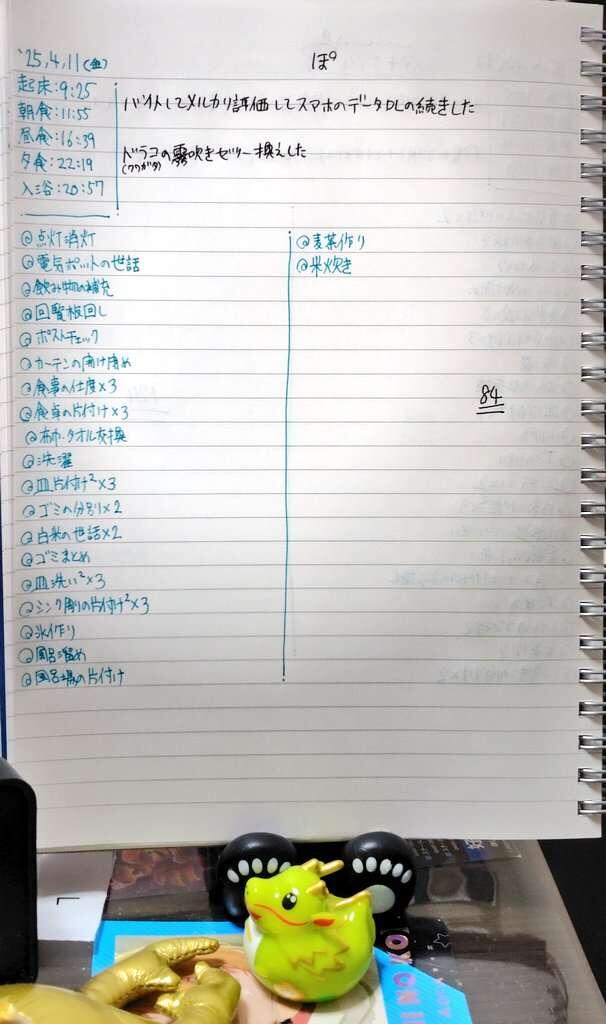 '25.4.11(金)
ぽ
起床:9:25
朝食:11:55
昼食:16:39
夕食:22:19
入浴:20:57
バイトしてメルカリ評価してスマホのデータDLの続きした
ドラコの霧吹きゼリー換えした
(クワガタ)
@点灯消灯
@電気ポットの世話
@飲み物の補充
@回覧板回し
@ポストチェック
@カーテンの開け閉め
@食事の仕度×3
@食卓の片付け×3
@布巾・タオル交換
@洗濯
@皿片付け²×3
@ゴミの分別×2
@白米の世話×2
@ゴミまとめ
@皿洗い²×3
@シンク周りの片付け²×3
@氷作り
@風呂溜め
@風呂場の片付け
@麦茶作り
@米炊き
84